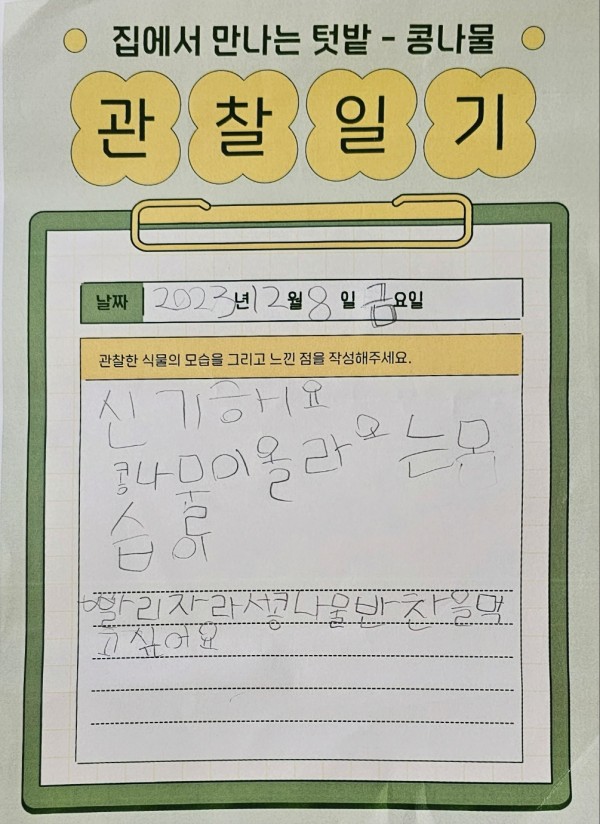 집에서 만나는 텃밭 - 콩나물
관찰일기
날짜 2023년 12월 8일 금요일
관찰한 식물의 모습을 그리고 느낀 점을 작성해주세요.
신기
콩나물이올라오는모
습을
빨리자라서콩나물반찬을먹
고싶어요